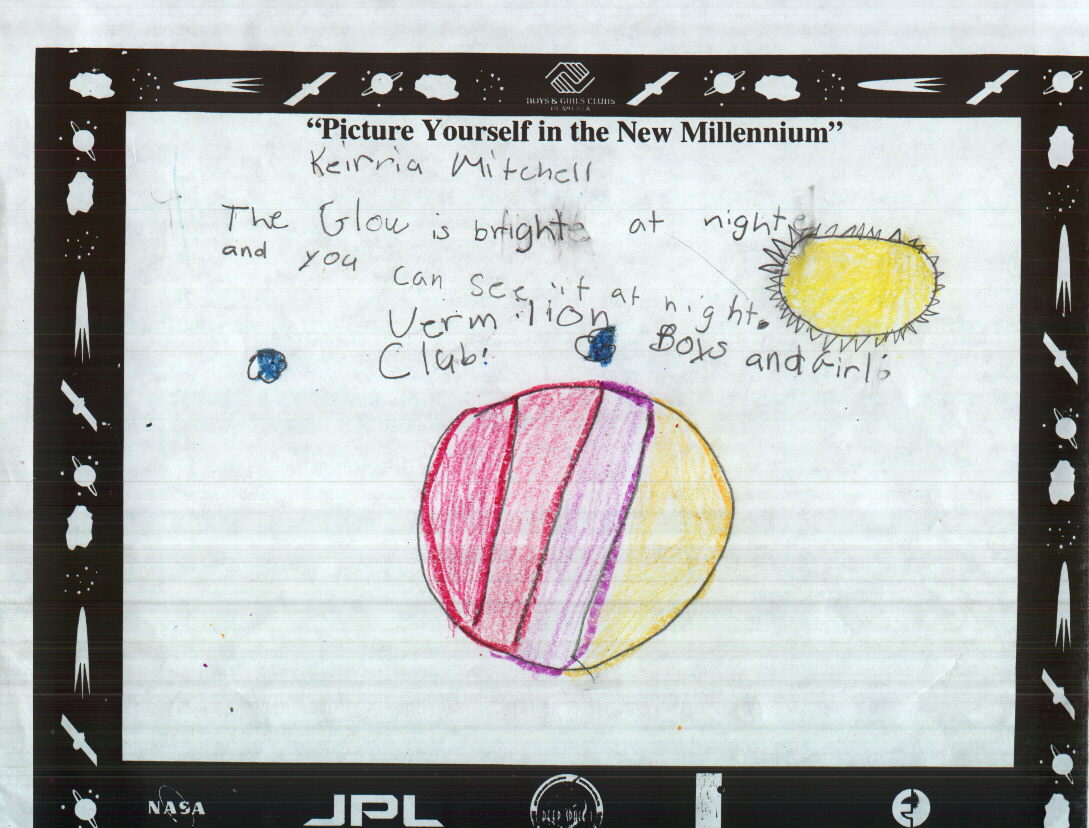 BOYS & GIRLS CLUBS
OF AMERICA
“Picture Yourself in the New Millennium”
Keirria Mitchell
The Glow is bright at night
and you can see it at night.
Vermilion Boys and Girls
Club!
NASA
JPL
DEEP SPACE 1